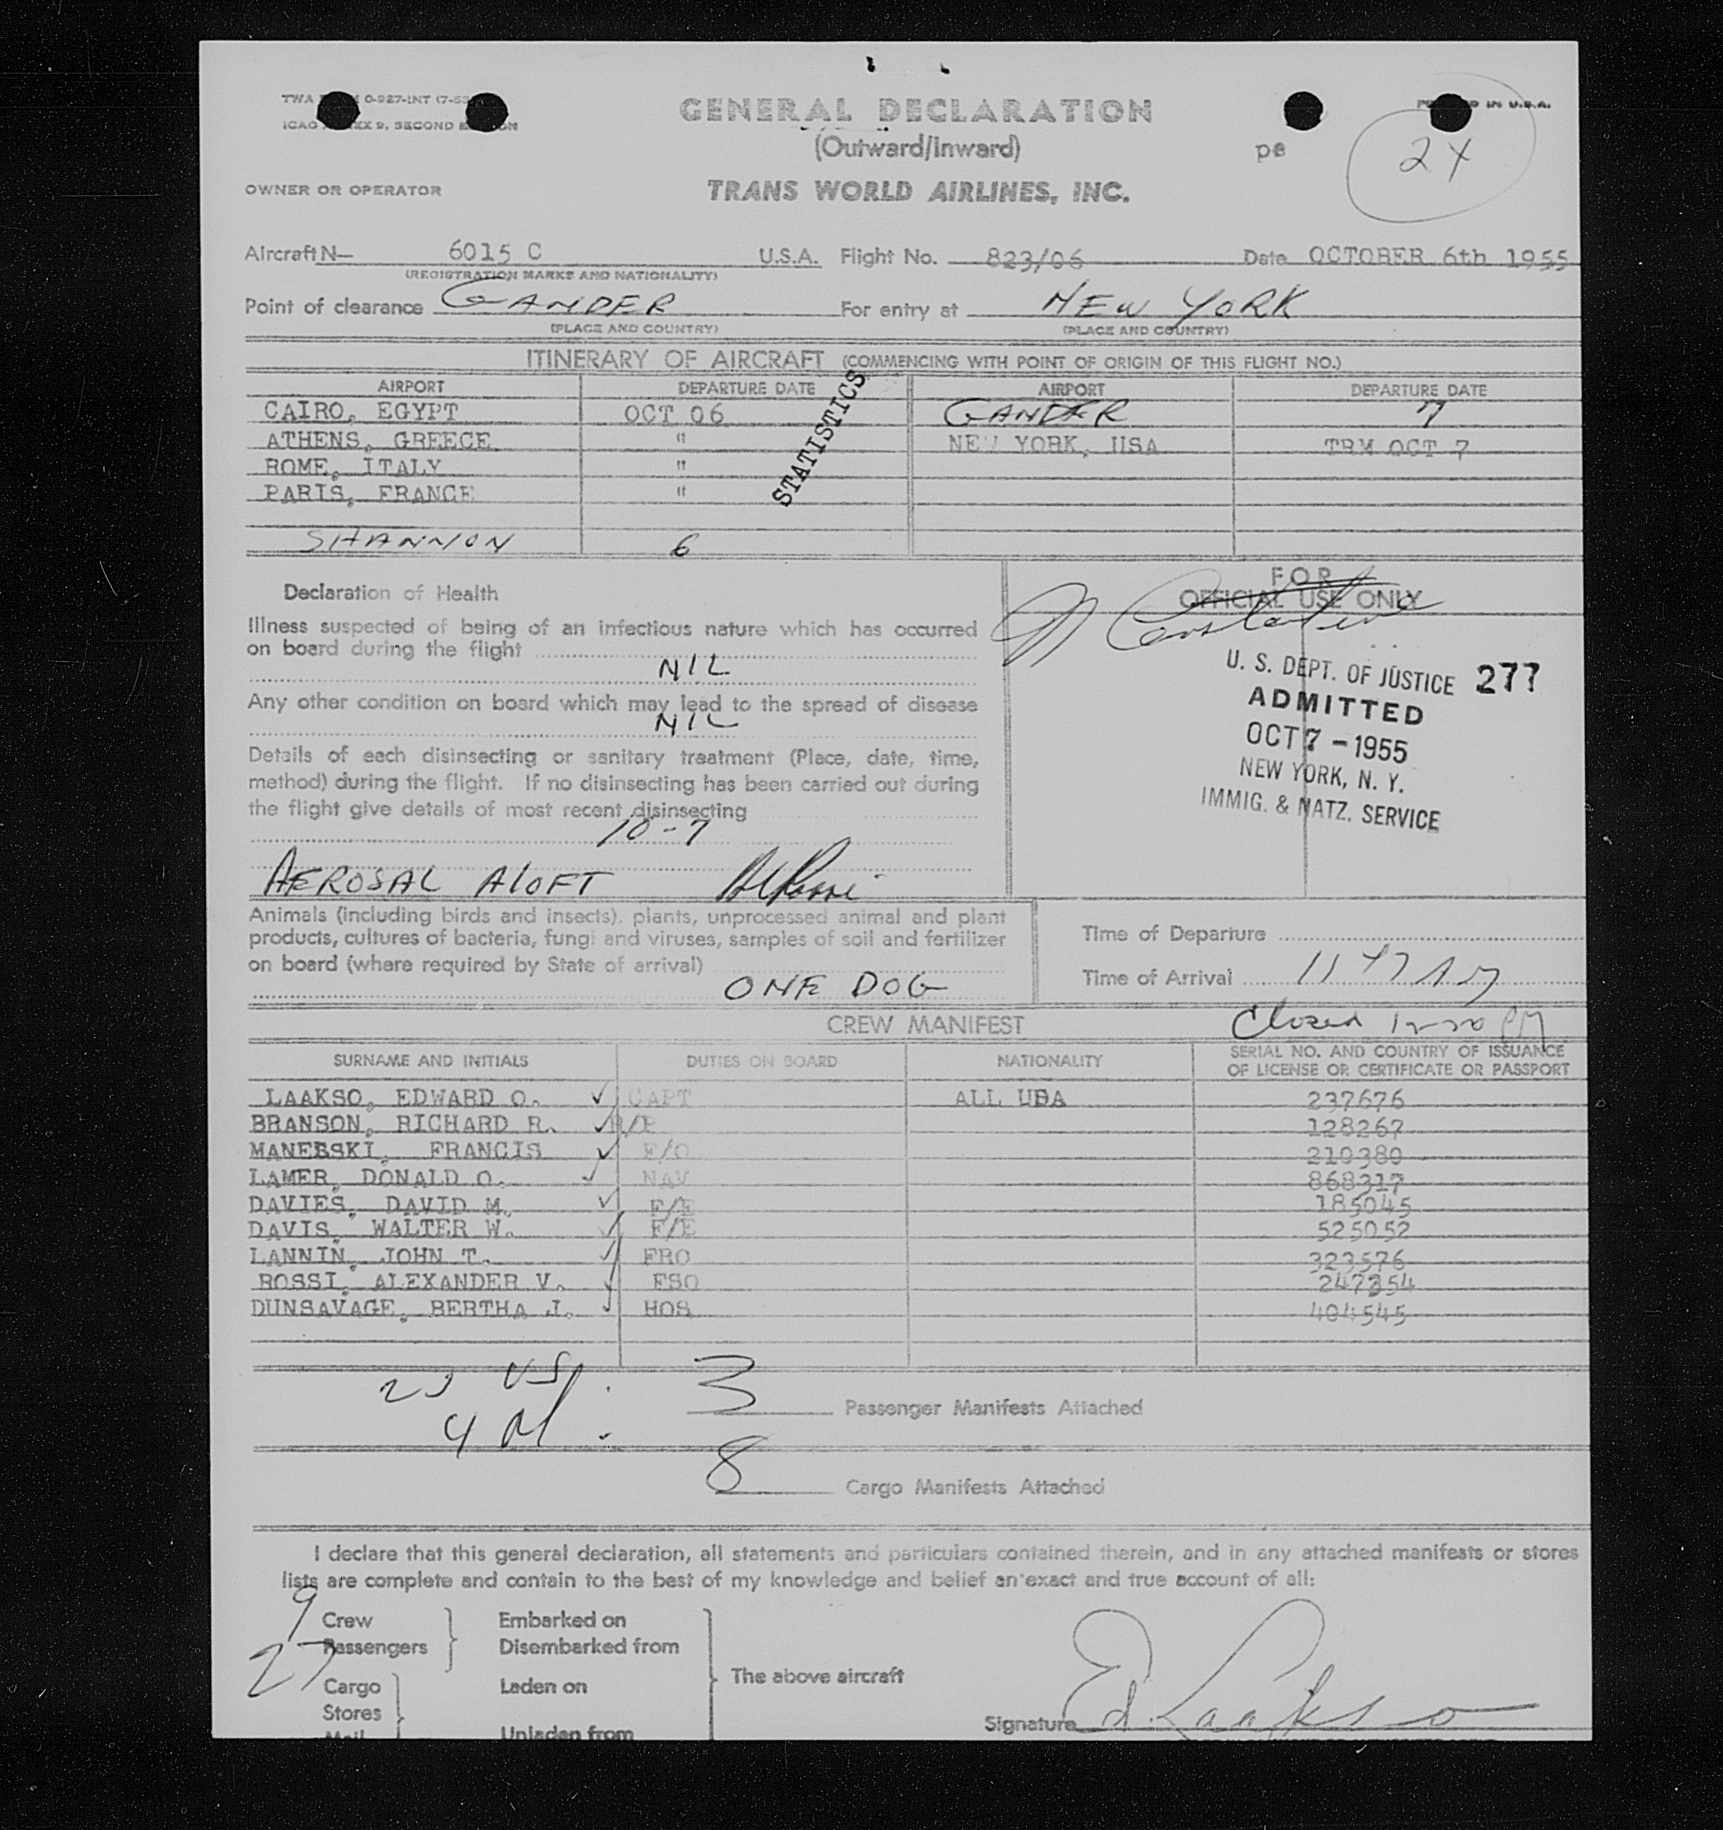 GENERAL DECLARATION
(Outward/Inward)
24
OWNER OR OPERATOR
TRANS WORLD AIRLINES, INC.
Aircraft N— 6015 C U.S.A. Flight No. 823/06 Date OCTOBER 6th 1955
(REGISTRATION MARKS AND NATIONALITY)
Point of clearance GANDER For entry at NEW YORK
(PLACE AND COUNTRY) (PLACE AND COUNTRY)
ITINERARY OF AIRCRAFT (COMMENCING WITH POINT OF ORIGIN OF THIS FLIGHT NO.)
AIRPORT DEPARTURE DATE AIRPORT DEPARTURE DATE
CAIRO, EGYPT OCT 06 GANDER 7
ATHENS, GREECE " NEW YORK, USA TRM OCT 7
ROME, ITALY "
PARIS, FRANCE "
SHANNON 6
STATISTICS
Declaration of Health
Illness suspected of being of an infectious nature which has occurred
on board during the flight
NIL
Any other condition on board which may lead to the spread of disease
NIL
Details of each disinsecting or sanitary treatment (Place, date, time,
method) during the flight. If no disinsecting has been carried out during
the flight give details of most recent disinsecting
10-7
AEROSAL ALOFT
FOR
OFFICIAL USE ONLY
U. S. DEPT. OF JUSTICE 277
ADMITTED
OCT 7 - 1955
NEW YORK, N. Y.
IMMIG. & NATZ. SERVICE
Animals (including birds and insects), plants, unprocessed animal and plant
products, cultures of bacteria, fungi and viruses, samples of soil and fertilizer
on board (where required by State of arrival)
ONE DOG
Time of Departure
Time of Arrival 1147 AM
Closed
CREW MANIFEST
SURNAME AND INITIALS DUTIES ON BOARD NATIONALITY SERIAL NO. AND COUNTRY OF ISSUANCE
OF LICENSE OR CERTIFICATE OR PASSPORT
LAAKSO, EDWARD O. CAPT ALL USA 237676
BRANSON, RICHARD R. 128267
MANEBSKI, FRANCIS F/O 210380
LAMER, DONALD O. NAV 868317
DAVIES, DAVID M. F/E 185045
DAVIS, WALTER W. F/E 525052
LANNIN, JOHN T. FRO 323576
ROSSI, ALEXANDER V. FSO 247354
DUNSAVAGE, BERTHA J. HOS 404545
23 US
4 Al
3 Passenger Manifests Attached
8 Cargo Manifests Attached
I declare that this general declaration, all statements and particulars contained therein, and in any attached manifests or stores
lists are complete and contain to the best of my knowledge and belief an exact and true account of all:
9 Crew Embarked on
27 Passengers Disembarked from
The above aircraft
Cargo Laden on
Stores
Mail Unladen from
Signature Ed. Laakso